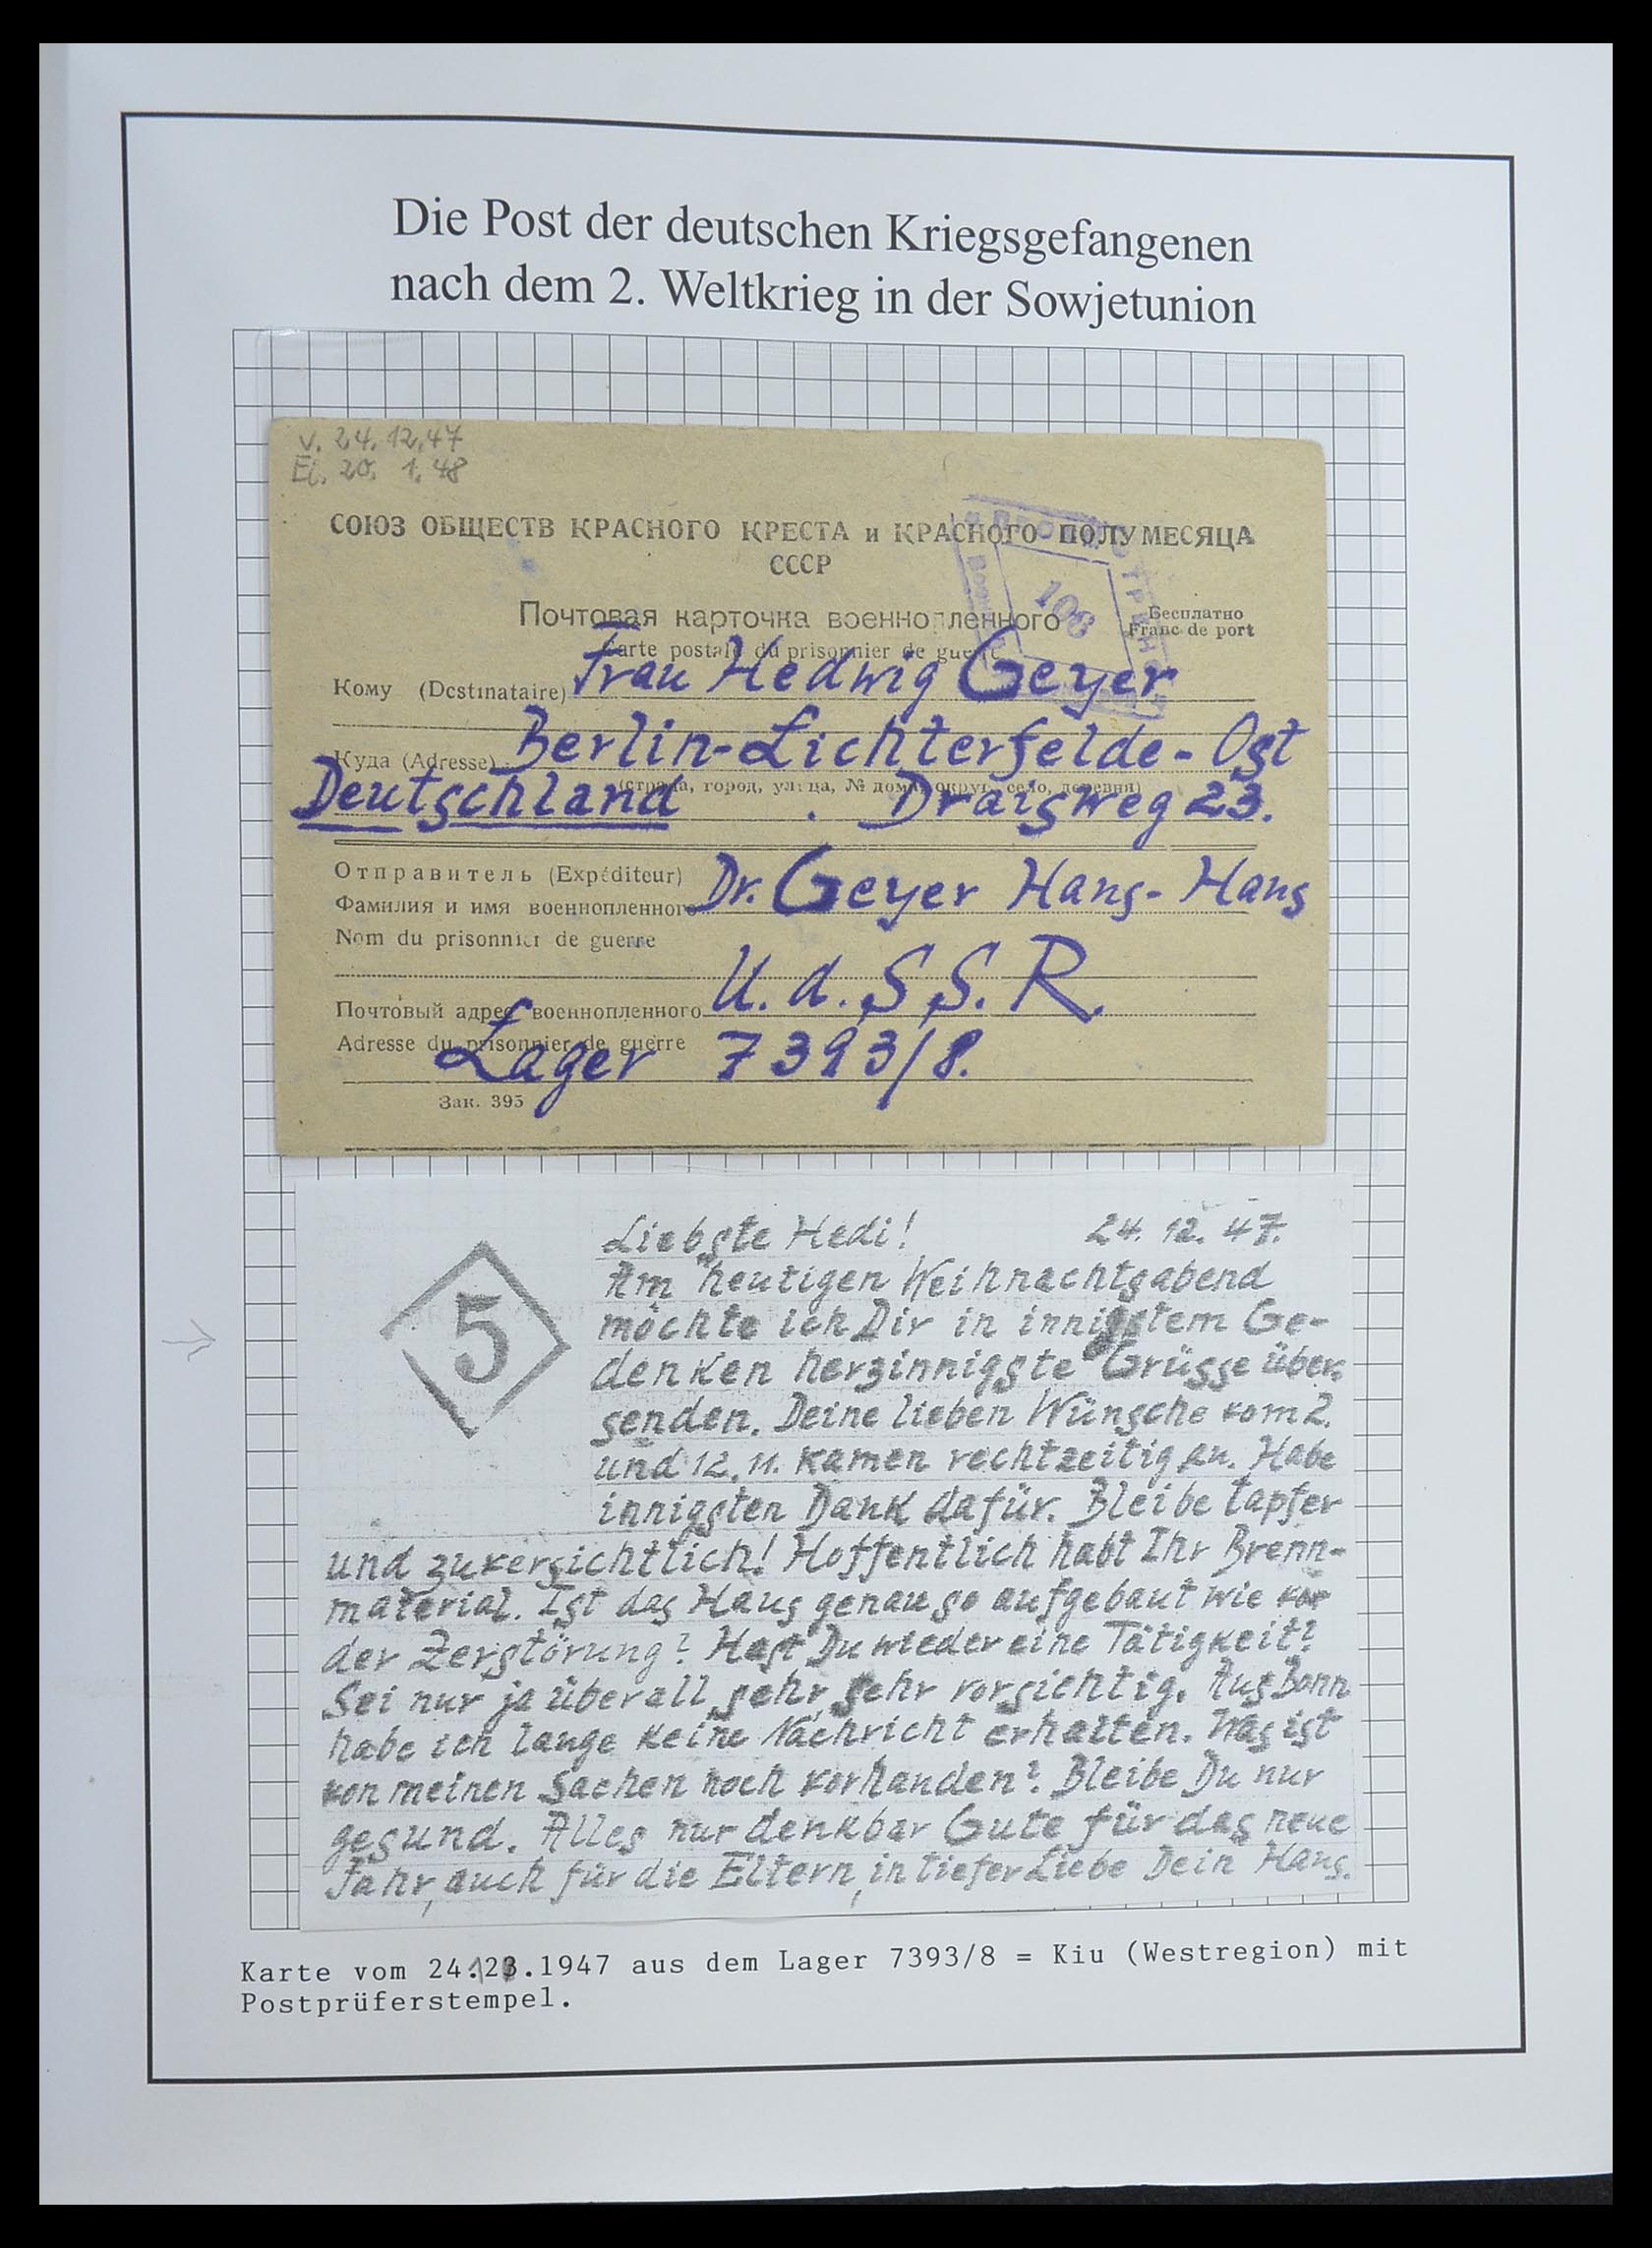 Die Post der deutschen Kriegsgefangenen
nach dem 2. Weltkrieg in der Sowjetunion
v. 24.12.47
Ei. 20. 1. 48
СОЮЗ ОБЩЕСТВ КРАСНОГО КРЕСТА и КРАСНОГО ПОЛУМЕСЯЦА
СССР
Почтовая карточка военнопленного
Carte postale du prisonnier de guerre
Бесплатно
Franc de port
108
Кому (Destinataire) Frau Hedwig Geyer
Куда (Adresse) Berlin-Lichterfelde-Ost
(страна, город, улица, № дома, округ, село, деревня)
Deutschland . Draisweg 23.
Отправитель (Expéditeur)
Фамилия и имя военнопленного Dr. Geyer Hans-Hans
Nom du prisonnier de guerre
Почтовый адрес военнопленного U.d.S.S.R.
Adresse du prisonnier de guerre
Lager 7393/8.
Зак. 395
5
Liebste Hedi! 24.12.47.
Am heutigen Weihnachtsabend
möchte ich Dir in innigstem Ge-
denken herzinnigste Grüsse über-
senden. Deine lieben Wünsche vom 2.
und 12.11. kamen rechtzeitig an. Habe
innigsten Dank dafür. Bleibe tapfer
und zuversichtlich! Hoffentlich habt Ihr Brenn-
material. Ist das Haus genau so aufgebaut wie vor
der Zerstörung? Hast Du wieder eine Tätigkeit?
Sei nur ja überall sehr, sehr vorsichtig. Aus Bonn
habe ich lange keine Nachricht erhalten. Was ist
von meinen Sachen noch vorhanden? Bleibe Du nur
gesund. Alles nur denkbar Gute für das neue
Jahr, auch für die Eltern, in tiefer Liebe Dein Hans.
Karte vom 24.12.1947 aus dem Lager 7393/8 = Kiu (Westregion) mit
Postprüferstempel.